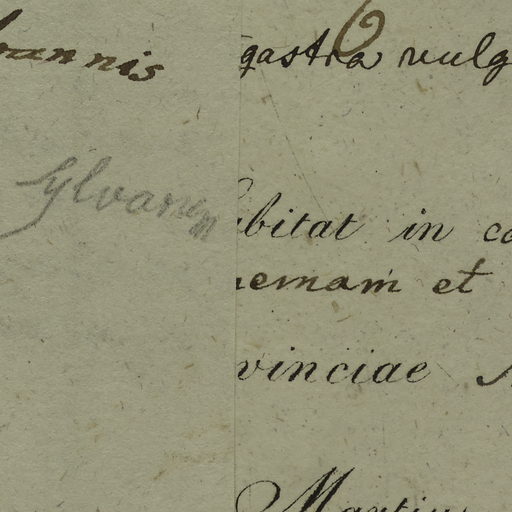 oannis
gastra vulg
Sylvanem
abitat in ca
nemam et
vinciae
Martius